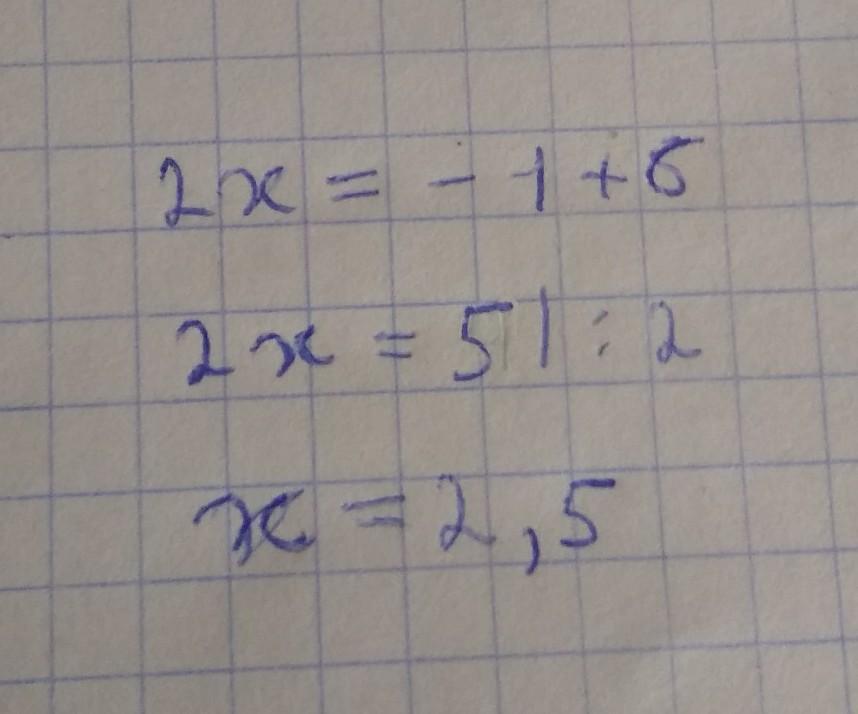 2x = - 1 + 6
2x = 5 | : 2
x = 2,5